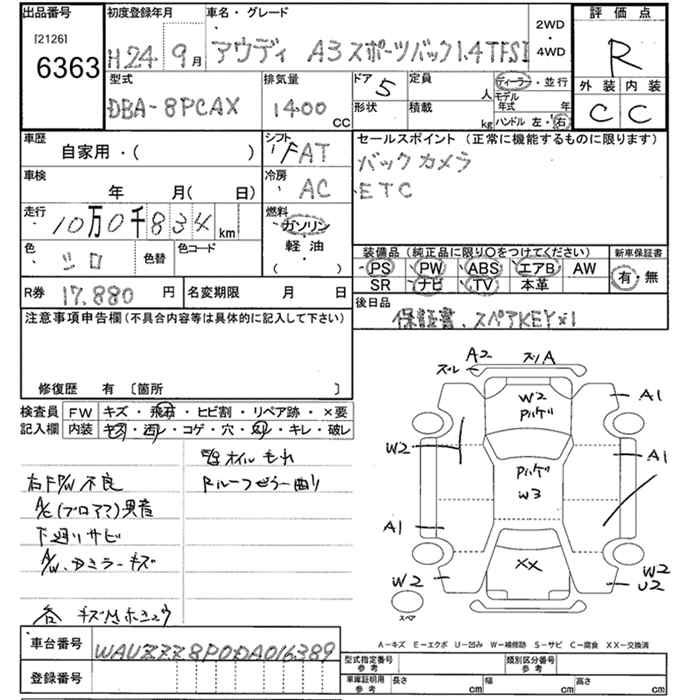 出品番号 初度登録年月 車名・グレード 2WD ・ 4WD 評価点
[2126]
6363 H24 9月 アウディ A3スポーツバック1.4TFSI R
型式 排気量 ドア 5 定員 人 ディーラー・並行 外装 内装
DBA-8PCAX 1400 CC 形状 積載 kg モデル年式 年 C C
ハンドル 左・右
車歴 シフト セールスポイント (正常に機能するものに限ります)
自家用・( ) FAT バックカメラ
車検 冷房 ETC
年 月( 日) AC
走行 燃料
10万0千834km ガソリン
色 シロ 色替 色コード 軽油 装備品 (純正品に限り○をつけてください) 新車保証書
( ) PS PW ABS エアB AW 有・無
SR ナビ TV 本革
R券 17,880円 名変期限 月 日 後日品
保証書、スペアKEY×1
注意事項申告欄(不具合内容等は具体的に記入して下さい)
修復歴 有 〔箇所 〕
検査員 FW キズ・飛石・ヒビ割・リペア跡・×要
記入欄 内装 キズ・汚レ・コゲ・穴・スレ・キレ・破レ
オイルモレ
右F P/W 不良
A/C(ブロアマ)異音
下廻リサビ
A/W、ドミラーキズ
各 キズ
A2 ズリA
スレ
W2 A1
W2 A1
W3
A1
XX
W2 W2
U2
スペア
A-キズ E-エクボ U-凹み W-補修跡 S-サビ C-腐食 XX-交換済
車台番号 WAUZZZ8P0DA016389 型式指定番号 参考 類別区分番号 参考
登録番号 車庫証明用 参考 長さ cm 幅 cm 高さ cm